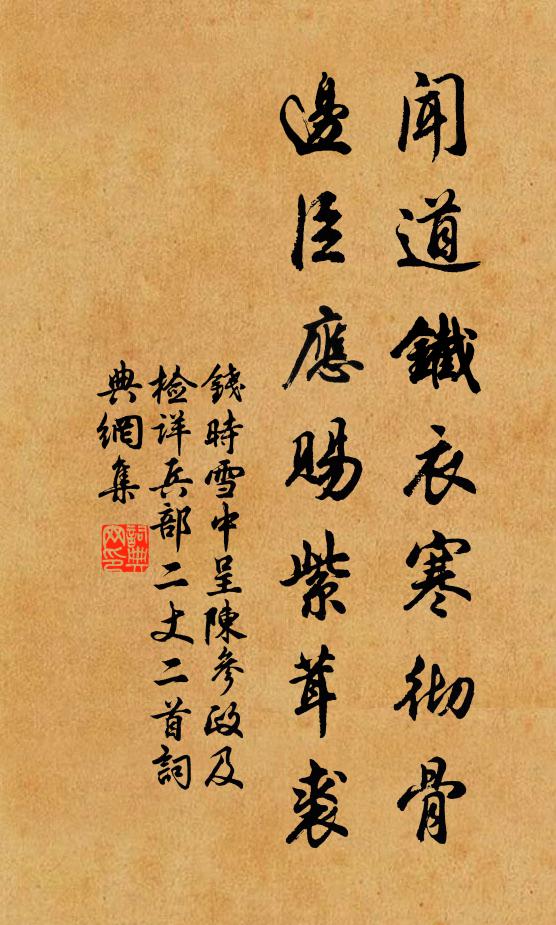 聞道鐵衣寒徹骨
邊臣應賜紫茸裘
錢時雪中呈陳參政及
检详兵部二丈二首詞
典網集
詞典
网印